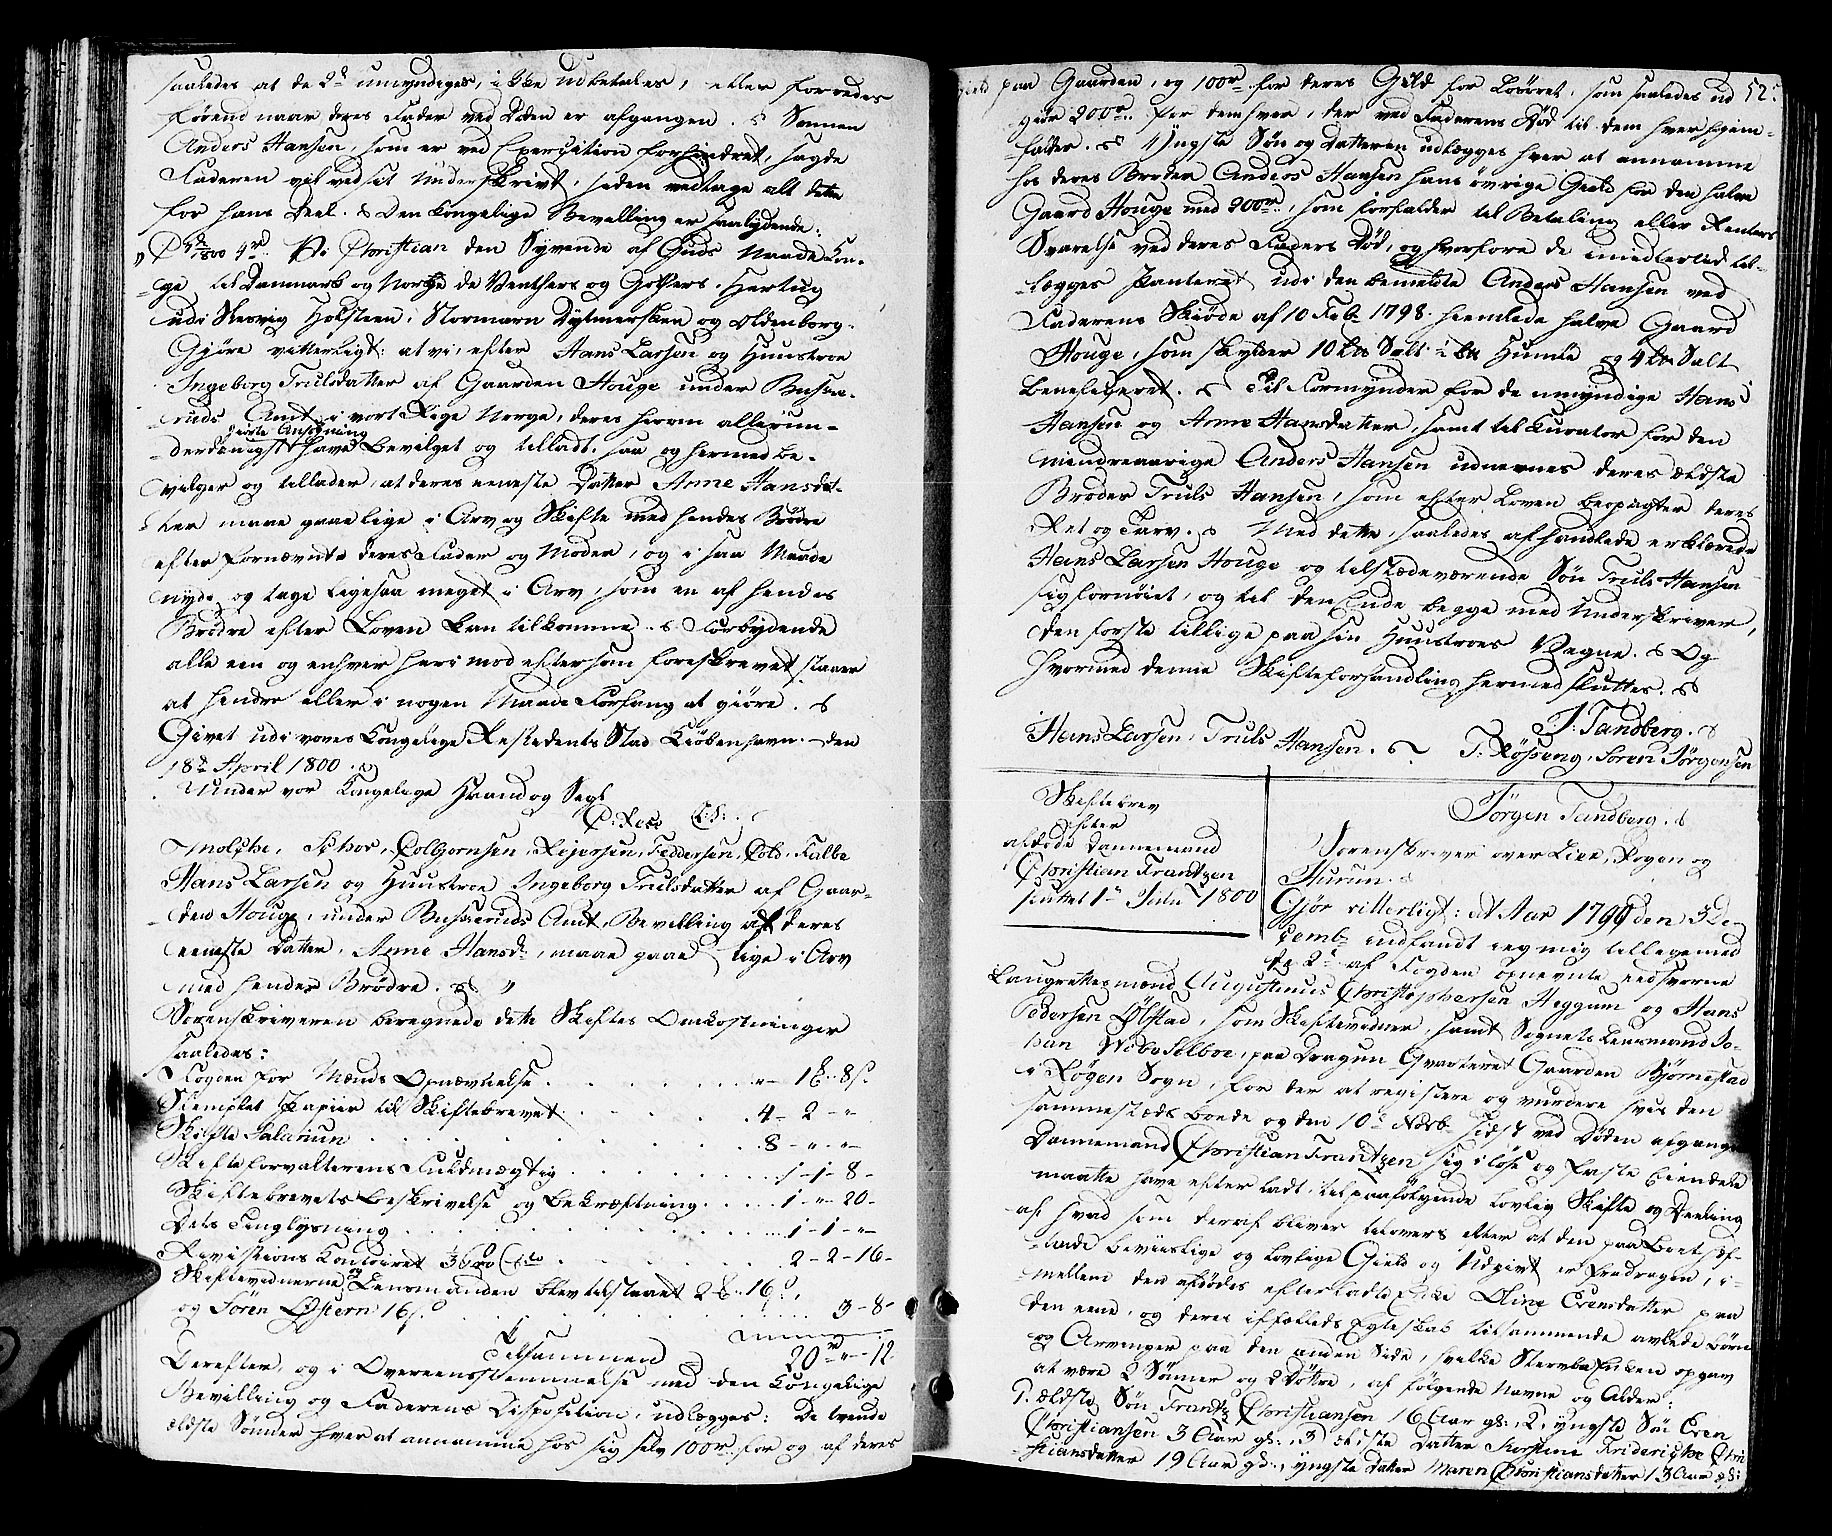 saaledes at de 2de umyndiges, ikke udbetales, eller forredes
førend naar deres Fader ved Døden er afgangen. Sønnen
Anders Hansen, som er ved Exersition forhindret, sagde
Faderen vil ved sit Underskrivt, siden vedtage alt dette
for hans Deel. Den kongelige Bevelling er saalydende:
Vi Christian den Syvende af Guds Naade Kon-
ge til Danmark og Norge de Venthers og Gothers. Hertug
udi Slesvig Holsteen, Stormarn Dytmersken og Oldenborg.
Gjøre vitterligt: at vi, efter Hans Larsen og Huustroe
Ingeborg Trulsdatter af Gaarden Houge under Buskæ-
ruds Amt, i vort Rige Norge, deres herom allerun-
giorte Ansøgning
derdanigst have bevilget og tilladt, saa og hermed be-
vilger og tillader, at deres eeneste Datter Anne Hansdat-
ter maae gaae lige i Arv og Skifte med hendes Brødre
efter fornævnte deres Fader og Moder, og i saa Maade
nyde og tage ligesaa meget i Arv, som en af hendes
Brødre efter Loven kan tilkomme. Forbydende
alle een og enhver heri mod eftersom foreskrevet staaer
at hindre eller i nogen Maade Forfang at giøre.
Givet udi vores kongelige Residents Stad Kiøbenhavn. den
18de April 1800
Under vor Kongelige Haand og Segl
C: Rex L:S:
Moltke, Schov, Colbjørnsen, Reiersen, Feddersen, Cold, Falbe
Hans Larsen og Huustroe Ingeborg Trulsdatter af Gaar-
den Houge, under Buskeruds Amt, Bevilling at deres
eeneste Datter, Anne Hansd:, maae gaae lige i Arv
med hendes Brødre.
Sorenskriveren beregnede dette Skiftes Omkostninger
saaledes:
Fogden for Mænds Opnævnelse . . . " - 1 - 8
Stemplet Papier til Skiftebrevet . . . 4 - 2 - "
Skifte Salarium . . . 8 - " - "
Skifteforvalterens Fuldmægtig . . . 1 - 1 - 8 -
Skiftebrevets beskrivelse og bekræftning . . . 1 - " - 20 -
Dets Tinglysning . . . 1 - 1 - "
Revisions Contoiret . . . 2 - 2 - 16 -
Skiftevidnerne og Lensmanden blev tilstaaet 2 16
og Søren Østern 16 . . . 3 - 8 -
Tilsammen 20 " 12.
Derefter, og i Overeensstemmelse med den Kongelige
Bevilling og Faderens Disposition, udlægges: De tvende
ældste Sønner hver at annamme hos sig selv 100r for og af deres
Gield paa Gaarden, og 100r for deres Gield for Løsøret, som saaledes ud 52.
giør 200r for dem hver, der ved Faderens Død til dem hver hjem-
falder. Yngste Søn og Datteren udlægges hver at annamme
hos deres Broder Anders Hansen hans øvrige Gield for den halve
Gaard Houge med 200r, som forfalder til Betaling eller Renters
Svarelse ved deres Faders Død, og hvorfore de imidlertid til-
lægges Panteret udi den bemeldte Anders Hansen ved
Faderens Skiøde af 10 Feb: 1798 hiemlede halve Gaard
Houge, som skylder 10 Salt Humle og 4 Salt
beneficeret. Til Formynder for de umyndige Hans
Hansen og Anne Hansdatter, samt til Kurator for den
mindreaarige Anders Hansen udnævnes deres ældste
Broder Truls Hansen, som efter Loven beopagter deres
Ret og Tarv. Med dette, saaledes afhandlede erklærede
Hans Larsen Houge og tilstædeværende Søn Truls Hansen
sig fornøiet, og til den Ende begge med Underskriver,
den første tillige paa sin Huustroes Vegne. Og
hvormed denne Skifteforhandling hermed sluttes.
J. Tandberg.
Hans Larsen, Truls Hansen. T. Røsseng, Søren Jørgensen
Skiftebrev
efter
afdøde Dannemand
Christian Frantzen
sluttet 1te Julii 1800
Jørgen Tandberg.
Sorenskriver over Lier, Røgen og
Hurum.
Gjør vitterligt: at Aar 1799 den 3 De-
cembr indfandt ieg mig tillegemed
de 2de af Fogden opnevnte eedsvorne
Laugrettesmænd Augustinus Christophersen Heggum og Hans
Pedersen Ølstad, som Skiftevidner, samt Sognets Lensmand Jo-
han Selboe, paa Dragun Qvarteret Gaarden Bjørnestad
i Røgen Sogn, for der at registere og vurdere hvis den
sammesteds boende og den 10de Novbr sidst ved Døden afgangne
Dannemand Christian Frantzen sig i løse og faste Eiendele
maatte have efterladt, til paafølgende lovlig Skifte og Deeling
af hvad som deraf bliver tilovers efter at den paa Boet hæf-
tende beviislige og lovlige Gield og Udgivt er fradragen, i-
mellem den afdødes efterladte Enke Oline Evensdatter paa
den eene, og deres i fælleds Egteskab tilsammende avlede Børn
og Arvinger paa den anden Side, hvilke Stervboe Enken opgav
at være 2 Sønner og 2 Døttre, af følgende Navne og Alder:
1. ældste Søn Frantz Christiansen 16 Aar gl:, 2. yngste Søn Even
Christiansen 3 Aar gl:, 3 ældste Datter Kierstine Friderikke Chri
stiansdatter 19 Aar gl:, yngste Datter Maren Christiansdatter 13 Aar gl: